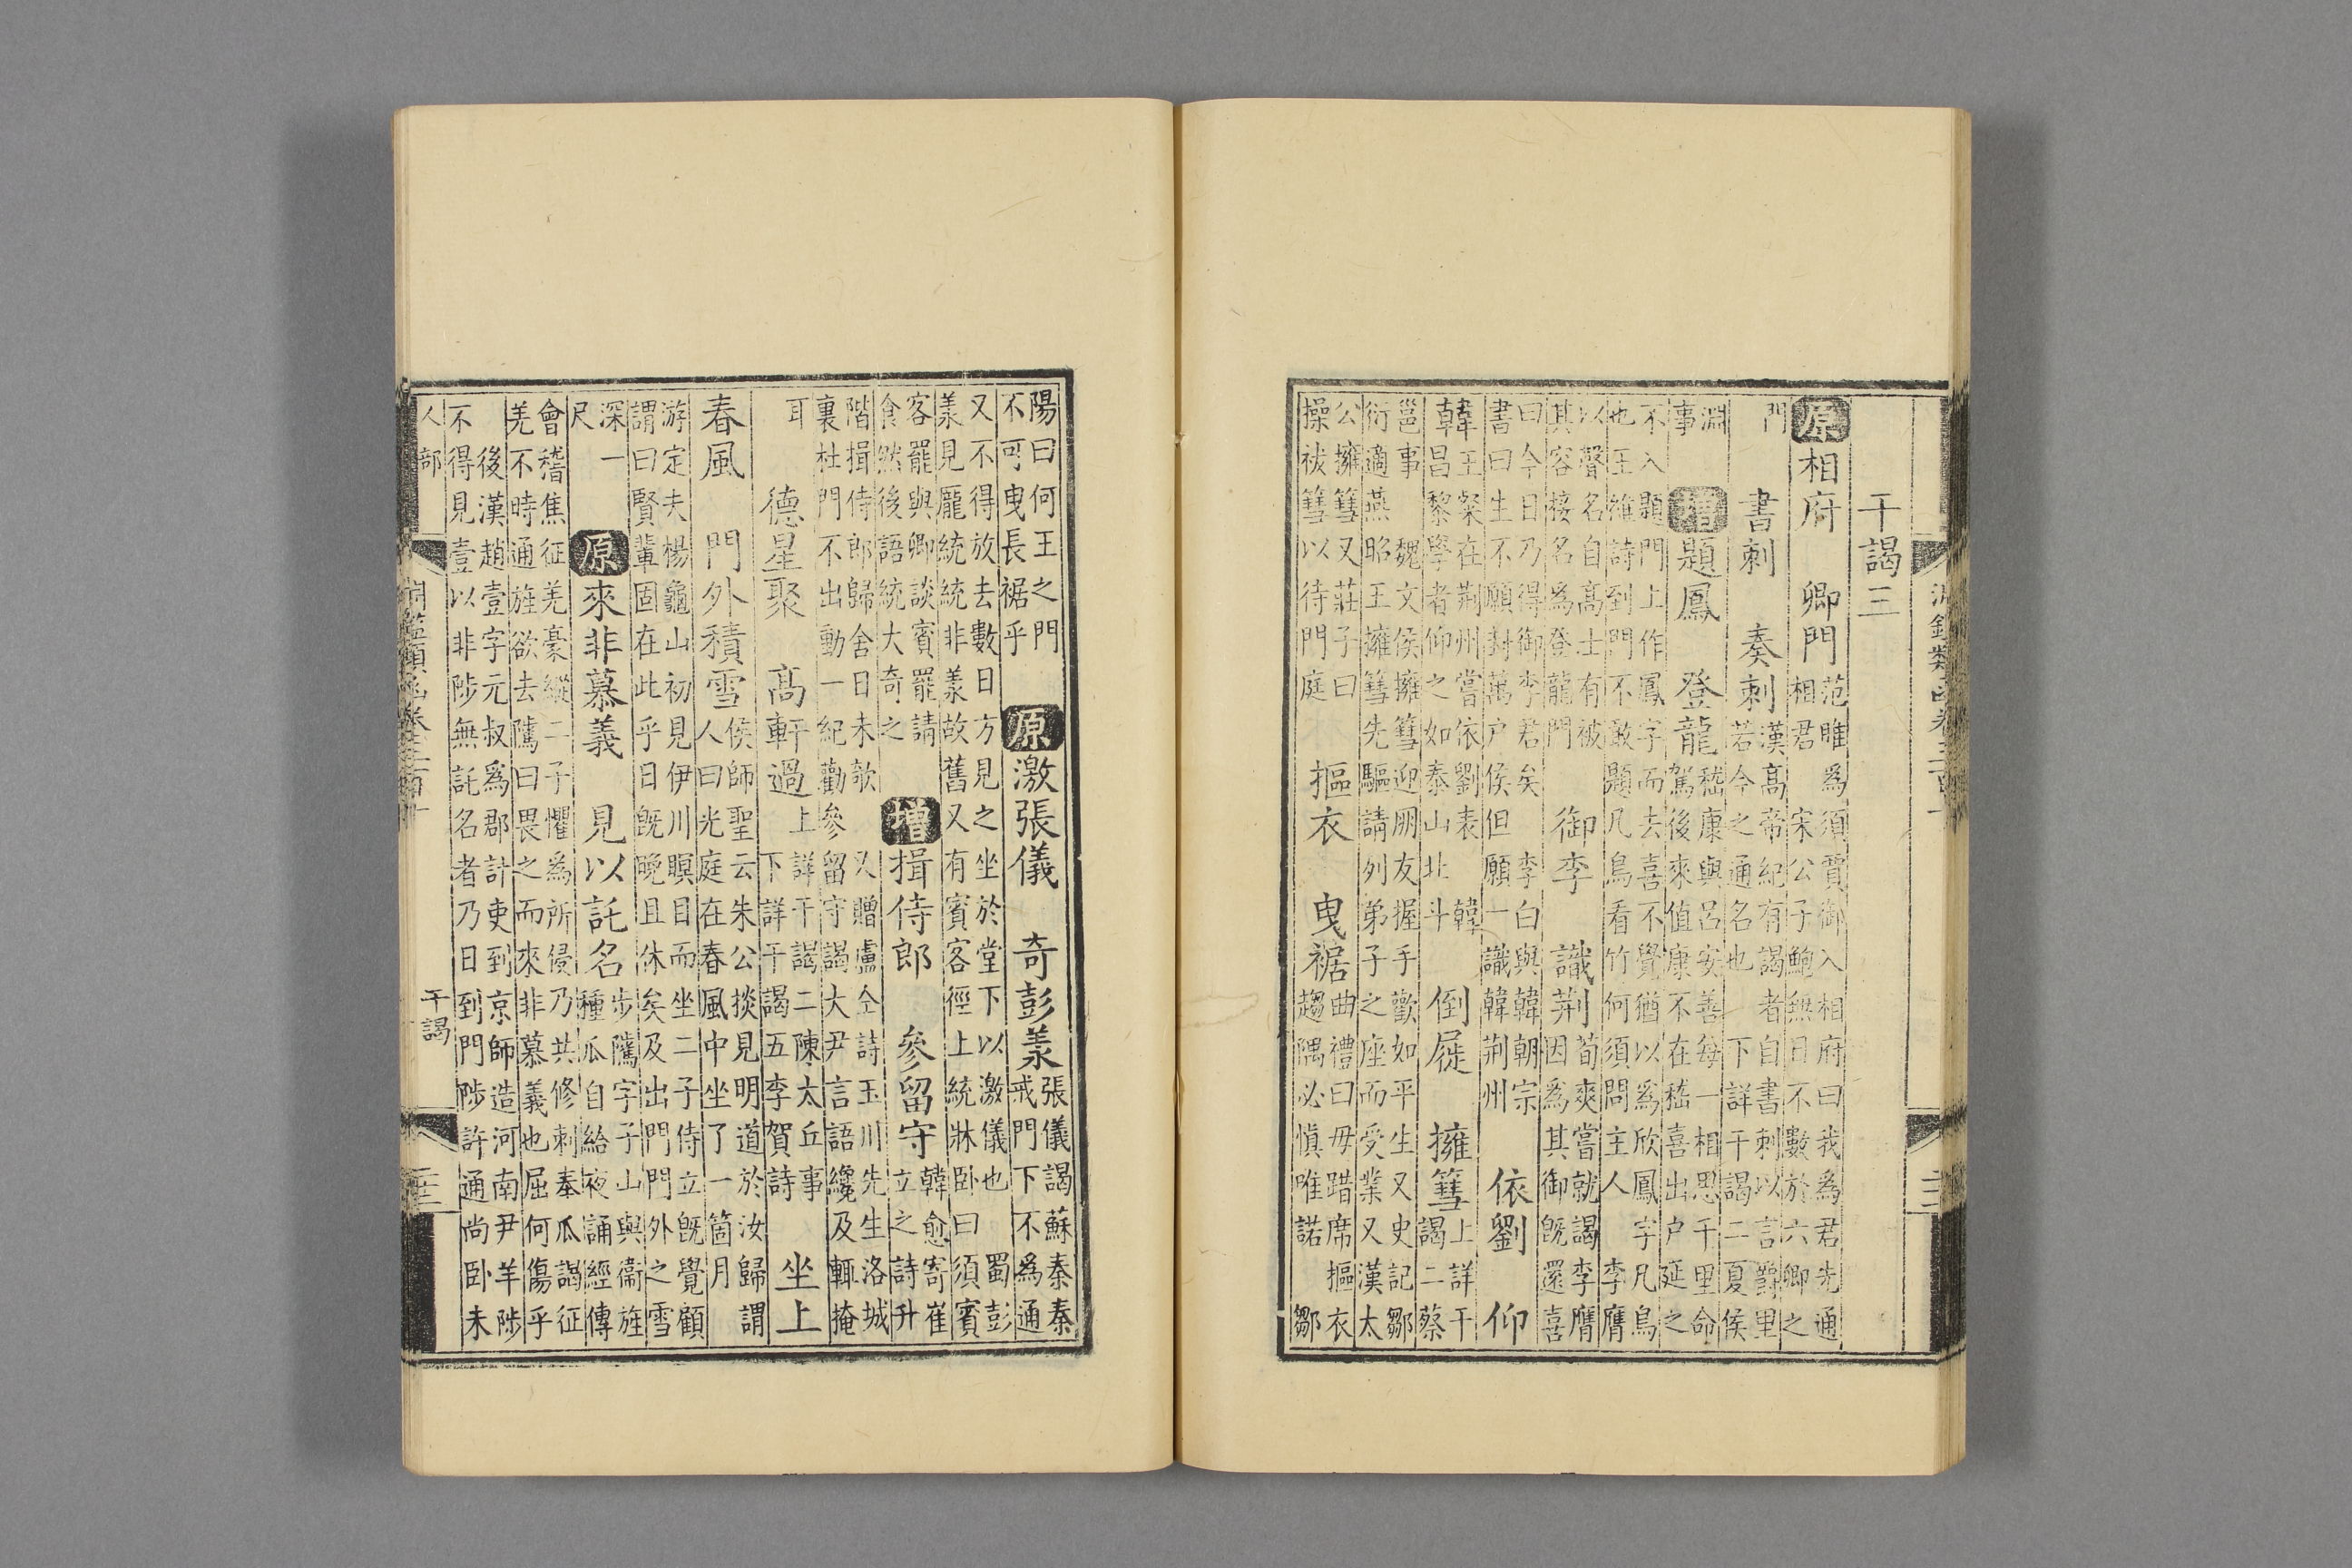 干謁三
原相府　卿門 范睢爲須賈御入相府曰我爲君先通
相君　宋公子鮑無日不數於六卿之
門　書刺　奏刺 漢高帝紀有謁者自書刺以言爵里
若今之通名也　下詳干謁二夏侯
淵
事　增題鳳　登龍 嵇康與呂安善每一相思千里命
駕後來值康不在嵇喜出户延之
不入題門上作鳳字而去喜不覺猶以爲欣鳳字凡鳥
也王維詩到門不敢題凡鳥看竹何須問主人　李膺
以聲名自高士有被
其容接名爲登龍門　御李　識荆 荀爽嘗就謁李膺
因爲其御既還喜
曰今日乃得御李君矣　李白與韓朝宗
書曰生不願封萬户侯但願一識韓荆州　依劉　仰
韓 王粲在荆州嘗依劉表　韓
昌黎學者仰之如泰山北斗　倒屣　擁篲 上詳干
謁二蔡
邕事　魏文侯擁篲迎朋友握手歡如平生又史記鄒
衍適燕昭王擁篲先驅請列弟子之座而受業又漢太
公擁篲又莊子曰
操袚篲以待門庭　摳衣　曳裾 曲禮曰毋踖席摳衣
趨隅必慎唯諾　鄒
陽曰何王之門
不可曳長裾乎　原激張儀　奇彭羕 張儀謁蘇秦秦
戒門下不爲通
又不得放去數日方見之坐於堂下以激儀也　蜀彭
羕見龐統統非羕故舊又有賓客徑上統牀卧曰須賓
客罷與卿談賓罷請
食然後語統大奇之　增揖侍郎　參留守 韓愈寄崔
立之詩升
階揖侍郎歸舍日未欹　又贈盧仝詩玉川先生洛城
裏杜門不出動一紀勸參留守謁大尹言語纔及輒掩
耳　德星聚　高軒過 上詳干謁二陳太丘事
下詳干謁五李賀詩　坐上
春風　門外積雪 侯師聖云朱公掞見明道於汝歸謂
人曰光庭在春風中坐了一箇月
游定夫楊龜山初見伊川瞑目而坐二子侍立既覺顧
謂曰賢輩固在此乎日既晚且休矣及出門門外之雪
深一
尺　原來非慕義　見以託名 步騭字子山與衞旌
種瓜自給夜誦經傳
會稽焦征羌豪縱二子懼爲所侵乃共修刺奉瓜謁征
羌不時通旌欲去騭曰畏之而來非慕義也屈何傷乎
後漢趙壹字元叔爲郡計吏到京師造河南尹羊陟
不得見壹以非陟無託名者乃日到門陟許通尚卧未
人部
干謁